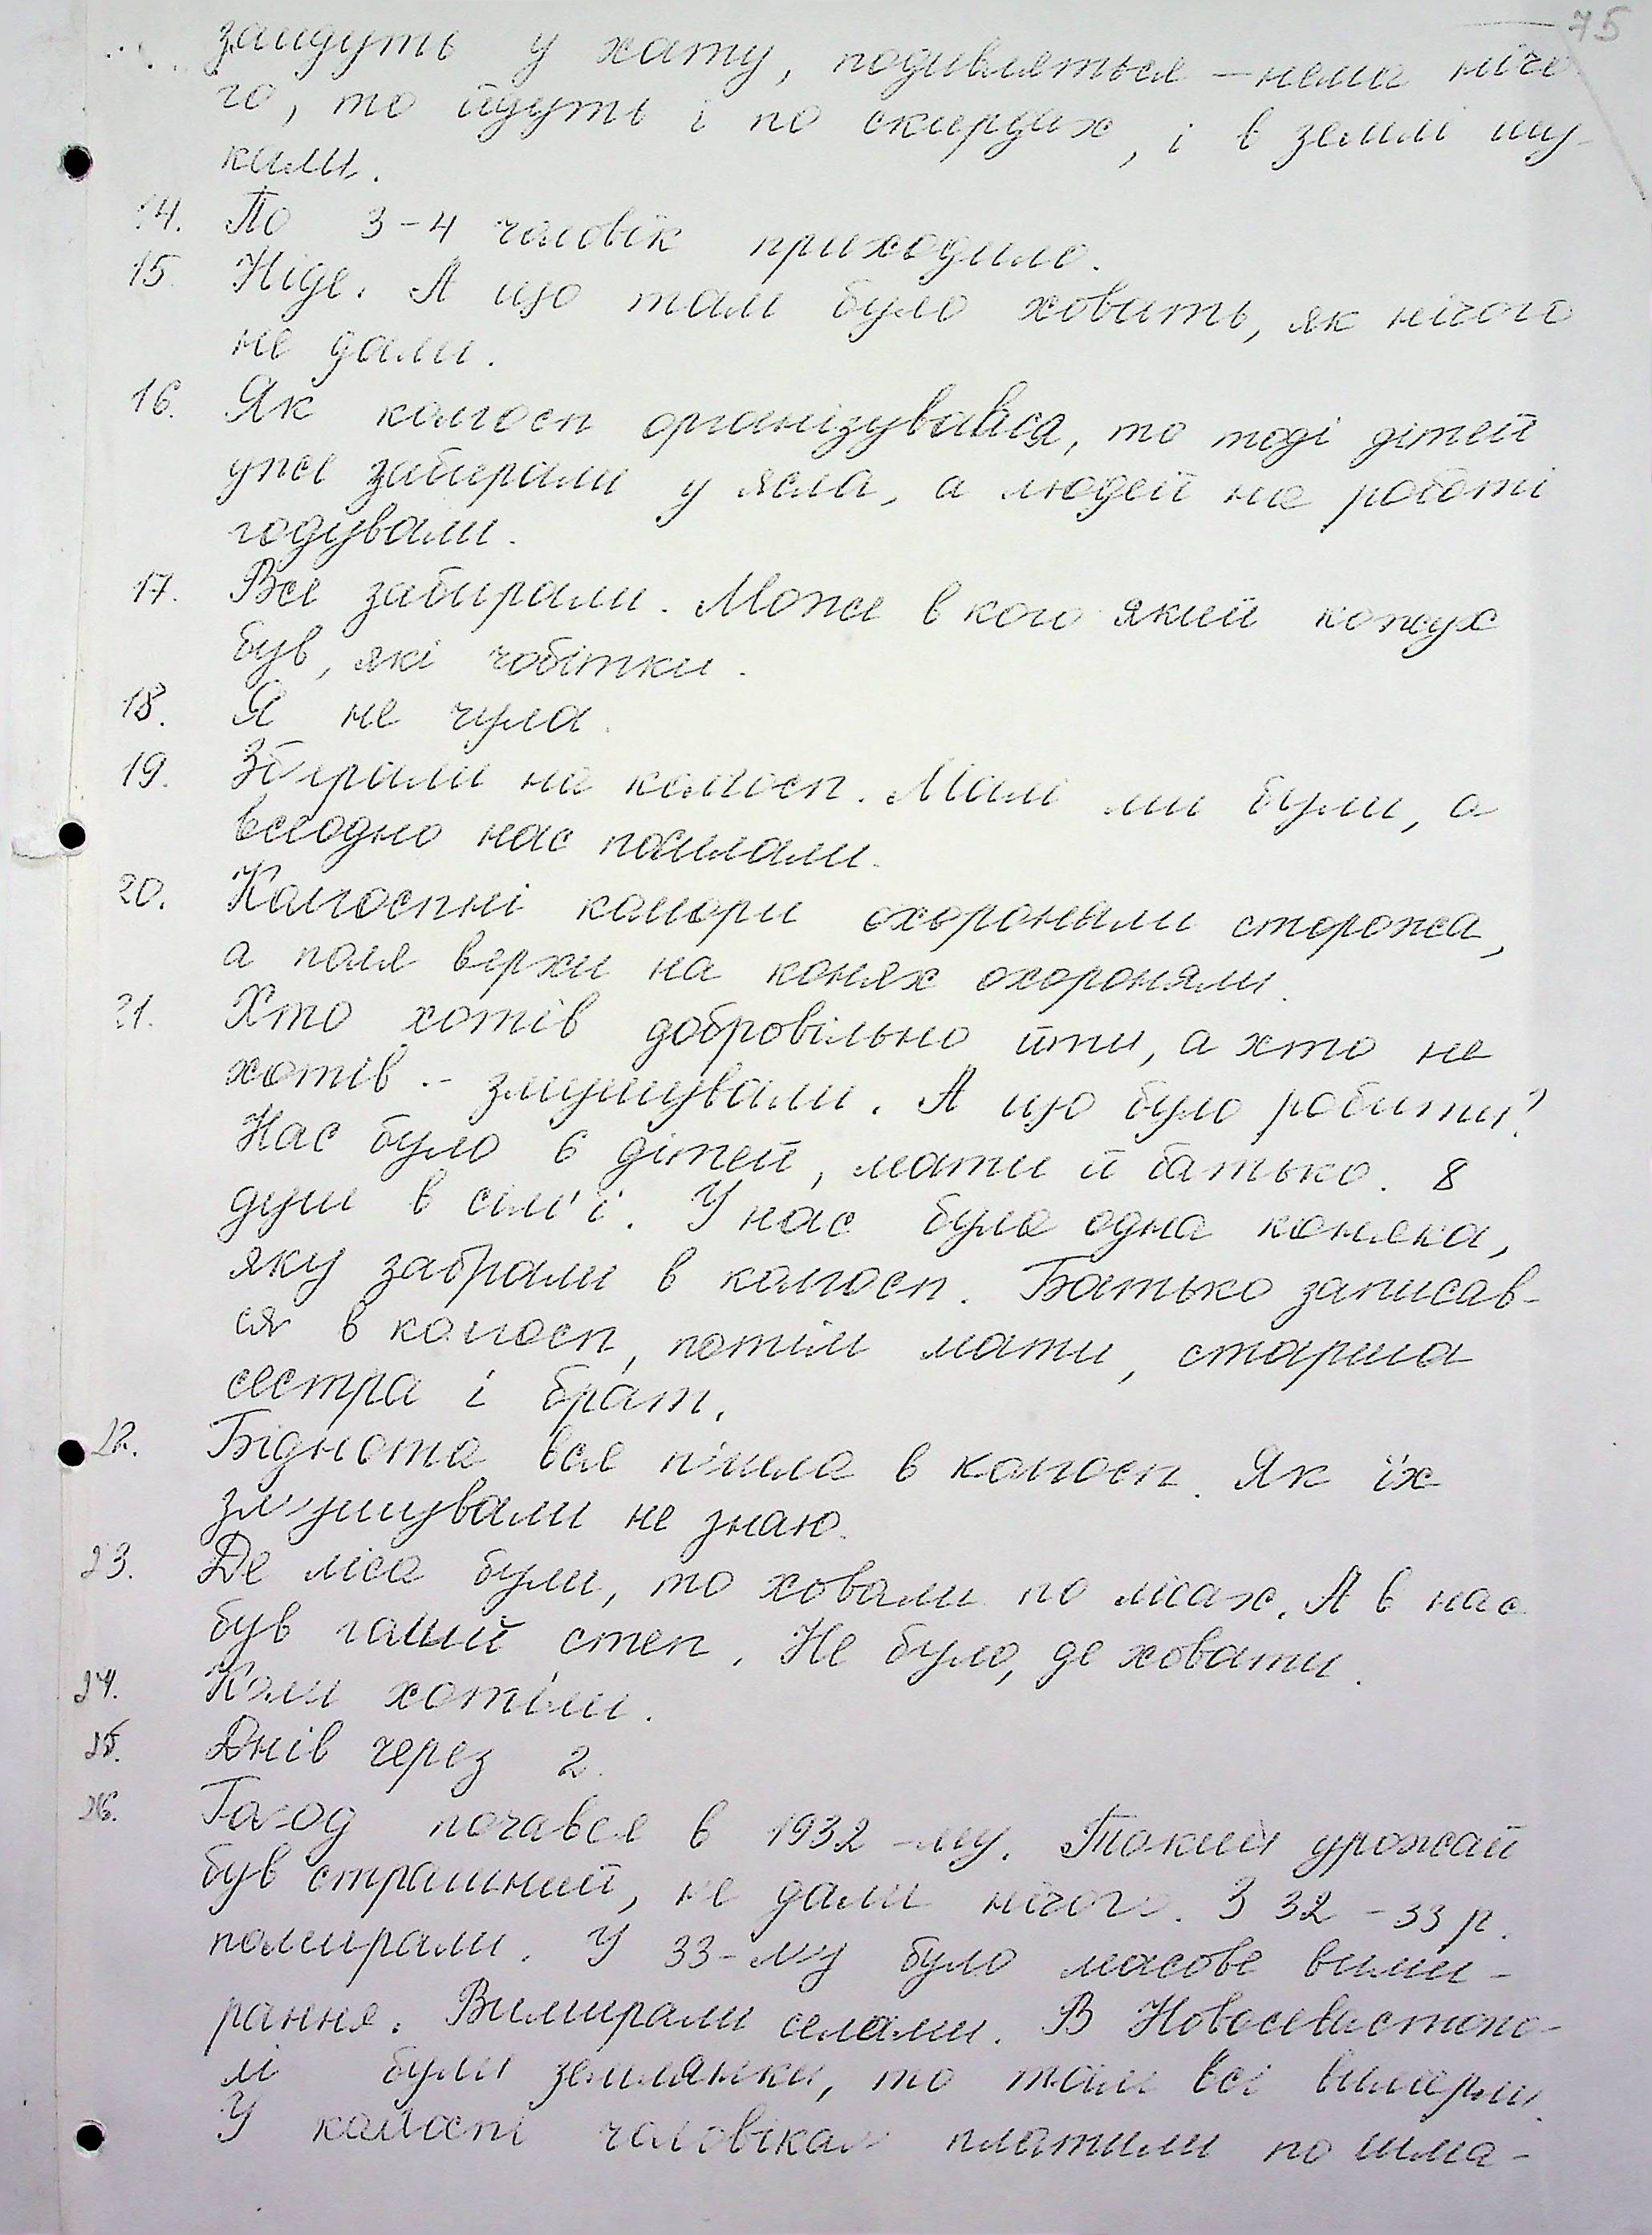 75
зайдуть у хату, подивляться — нема ніче
го, то йдуть і по скирдах, і в землі шу-
кали.
14. По 3-4 чоловік приходило.
15. Ніде. А що там було ховать, як нічого
не дали.
16. Як колгосп організувався, то тоді дітей
уже забирали у ясла, а людей на роботі
годували.
17. Все забирали. Може в кого який кожух
був, які чобітки.
18. Я не чула.
19. Збирали на колгосп. Малі ми були, а
всеодно нас посилали.
20. Колгоспні комори охороняли сторожа,
а поля верхи на конях охороняли.
21. Хто хотів добровільно йти, а хто не
хотів - змушували. А що було робити?
Нас було 6 дітей, мати й батько. 8
душ в сім'ї. У нас була одна коняка,
яку забрали в колгосп. Батько записав-
ся в колгосп, потім мати, старша
сестра і брат.
22. Біднота вся пішла в колгосп. Як їх
змушували не знаю.
23. Де ліса були, то ховали по лісах. А в нас
був голий степ. Не було, де ховати.
24. Коли хотіли.
25. Днів через 2.
26. Голод почався в 1932-му. Такий урожай
був страшний, не дали нічого. З 32-33 р.
помирали. У 33-му було масове вими-
рання. Вимирали селами. В Новосевастопо-
лі були землянки, то там всі вимерли.
У колгоспі чоловікам платили по шма-